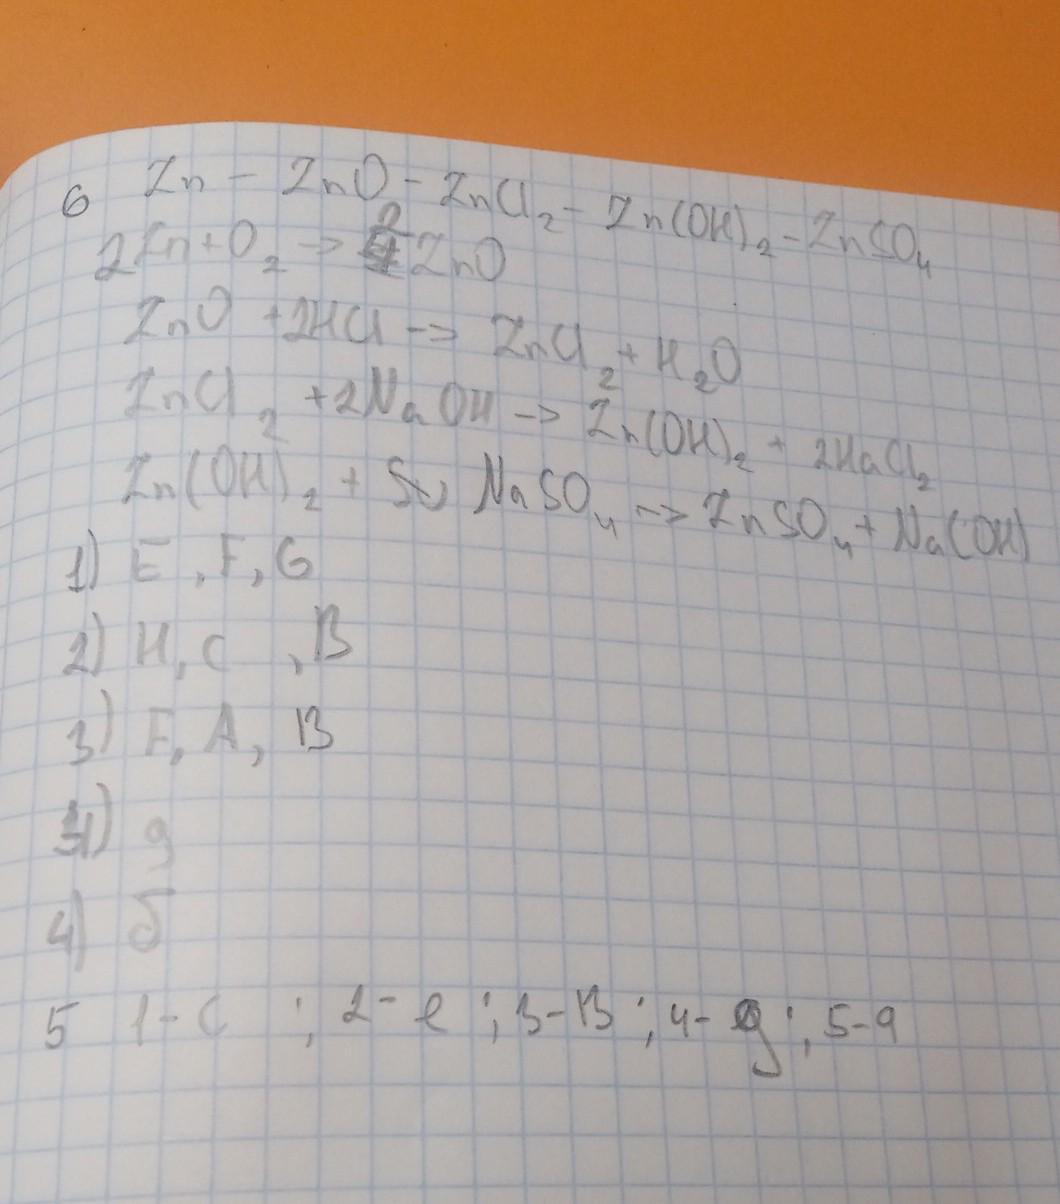 6 Zn - ZnO - ZnCl₂ - Zn(OH)₂ - ZnSO₄
2Zn + O₂ -> 2ZnO
ZnO + 2HCl -> ZnCl₂ + H₂O
ZnCl₂ + 2NaOH -> Zn(OH)₂ + 2HaCl₂
Zn(OH)₂ + NaSO₄ -> ZnSO₄ + Na(OH)
1) E, F, G
2) H, C, B
3) F, A, B
3) g
4) б
5 1-C ; 2-e ; 3-B ; 4-g ; 5-a